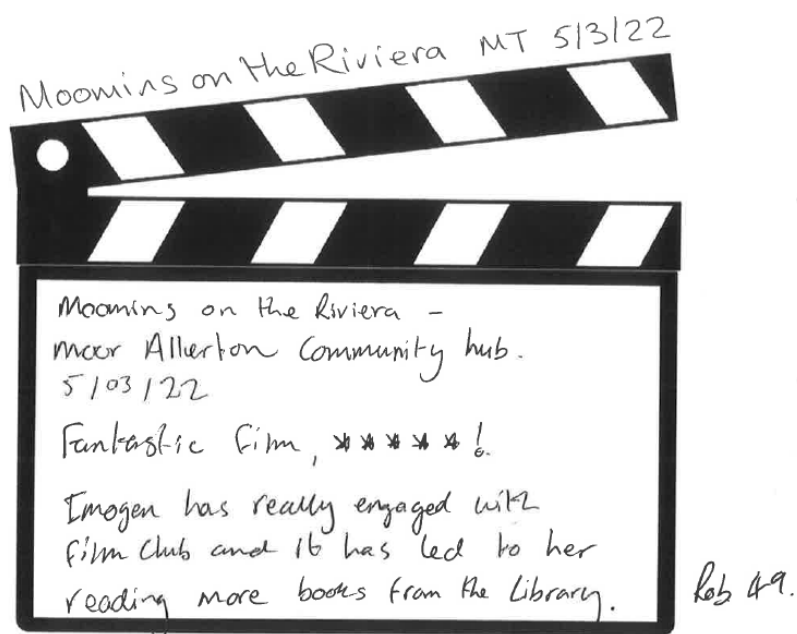 Moomins on the Riviera MT 5/3/22
Moomins on the Riviera -
Moor Allerton Community hub.
5/03/22
Fantastic film, *****!
Imogen has really engaged with
film club and it has led to her
reading more books from the Library.
Rob 49.